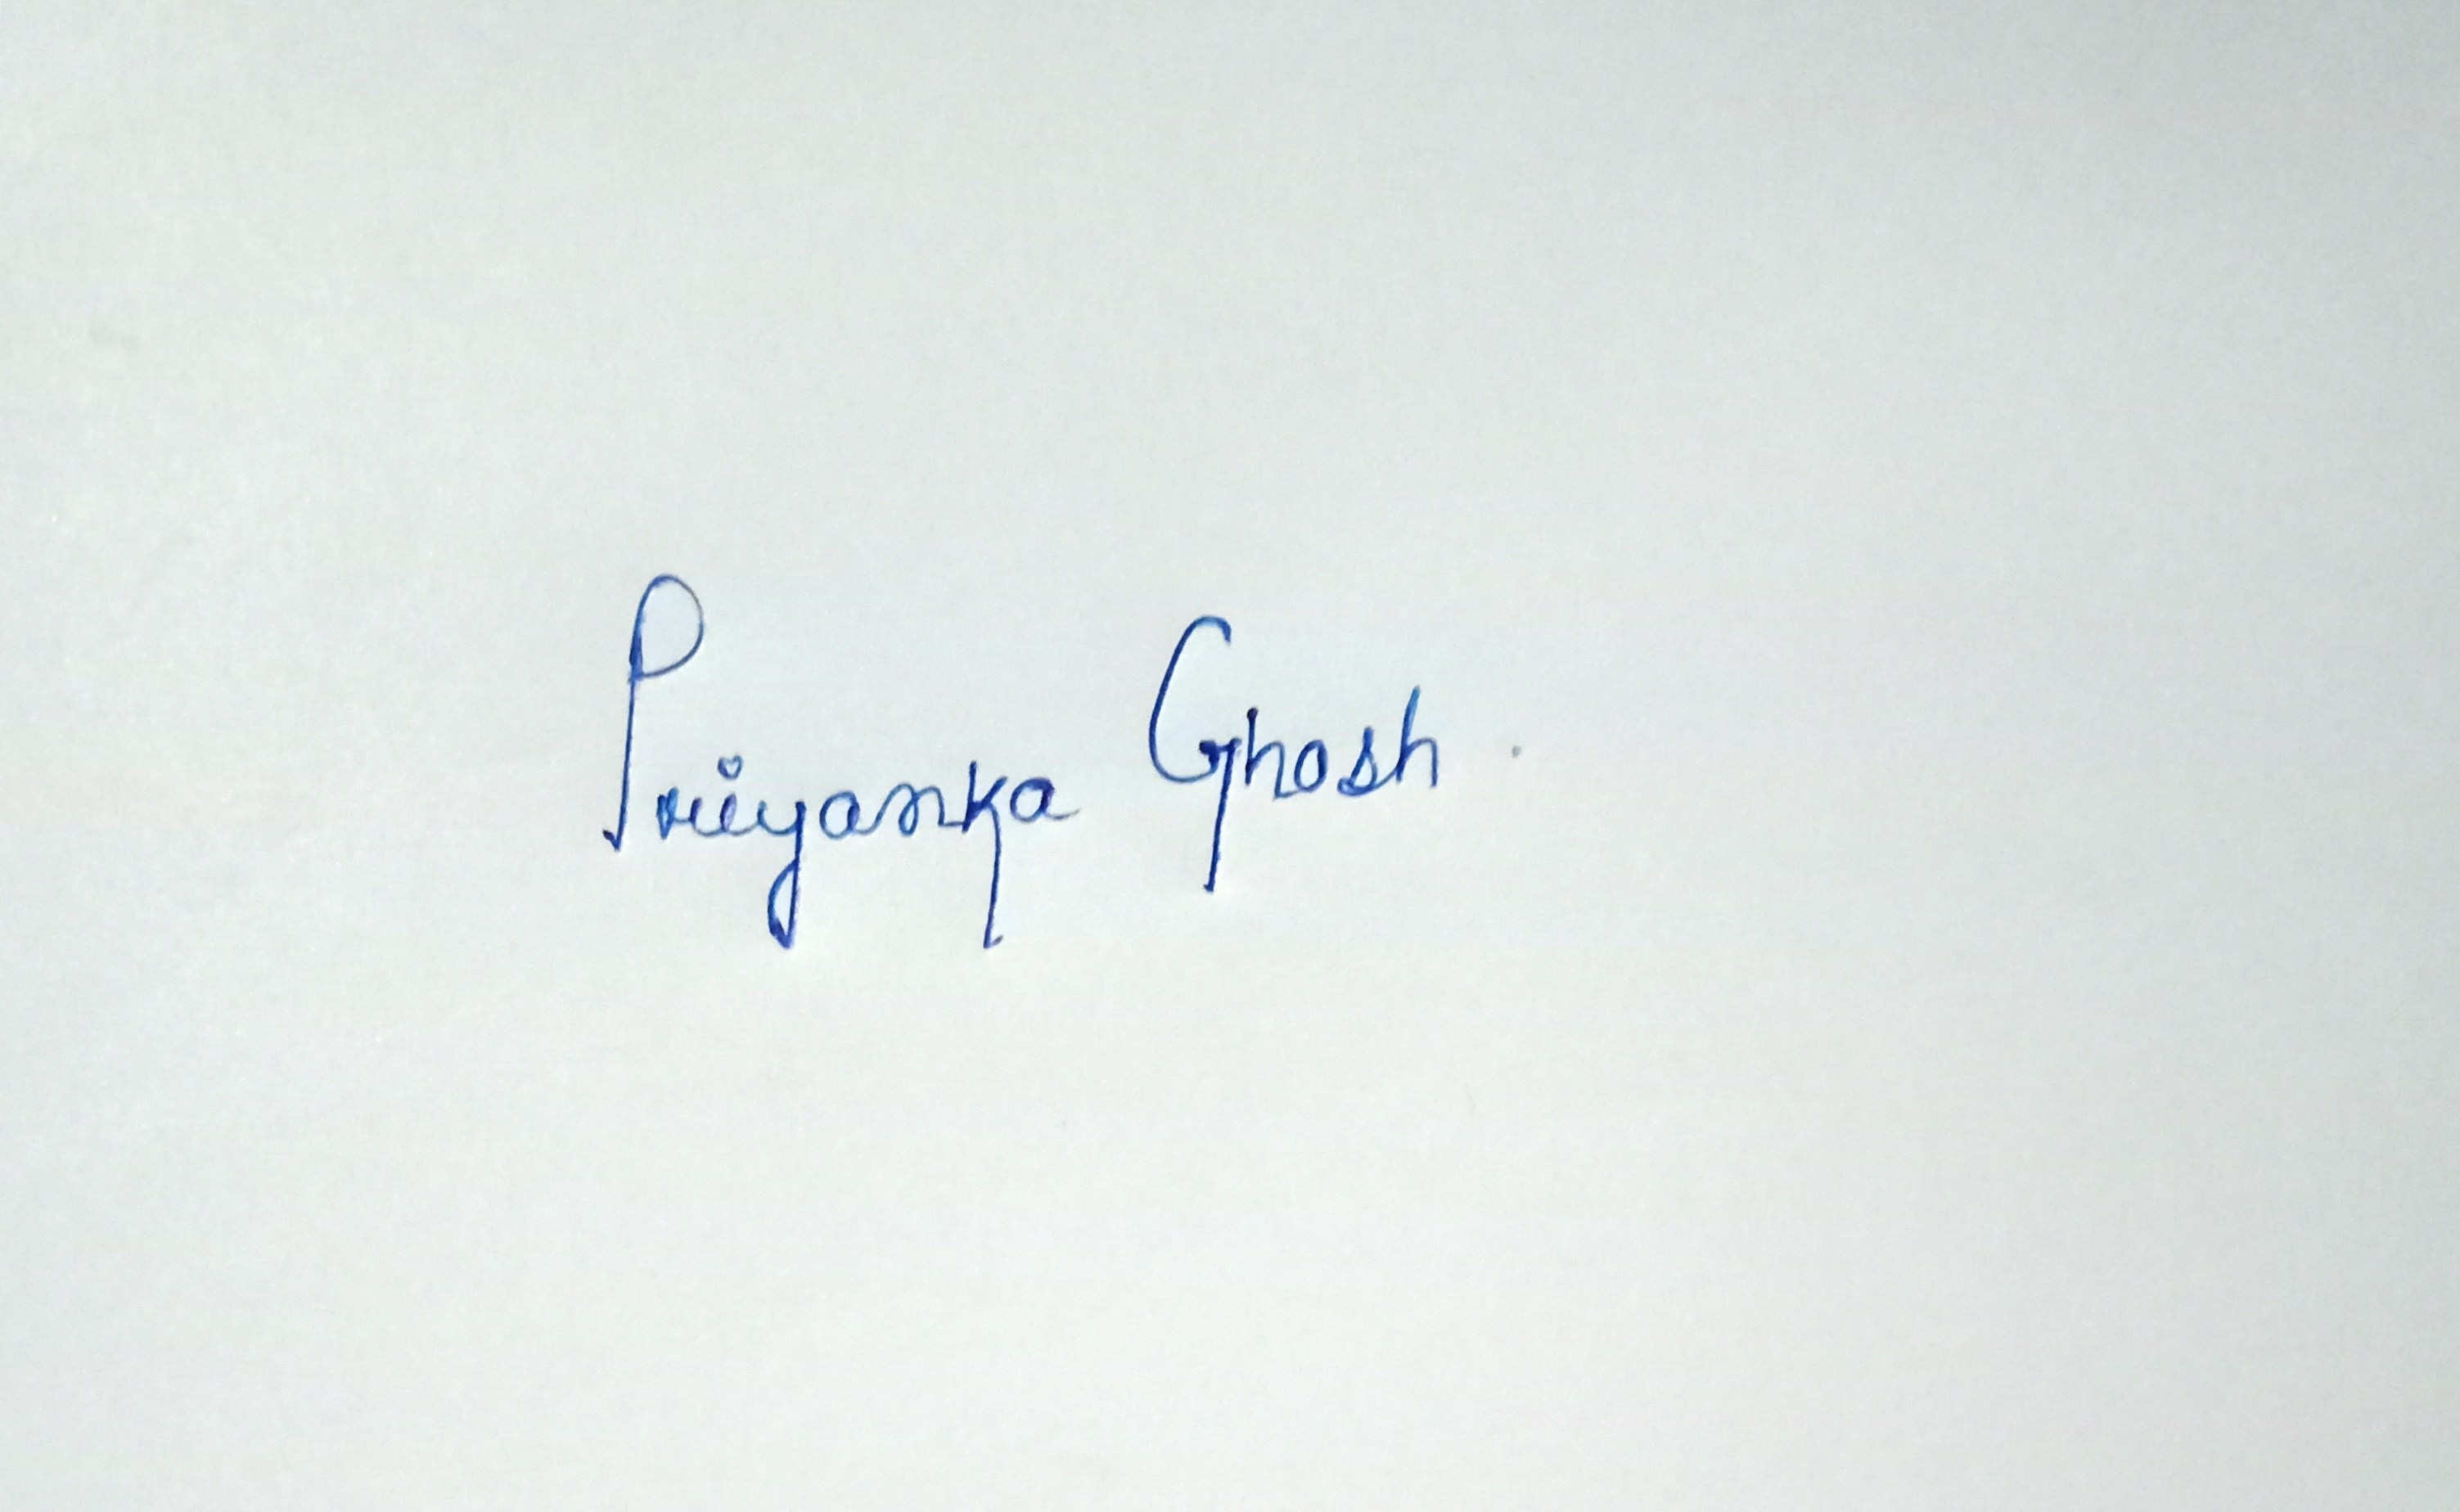 Priyanka Ghosh.